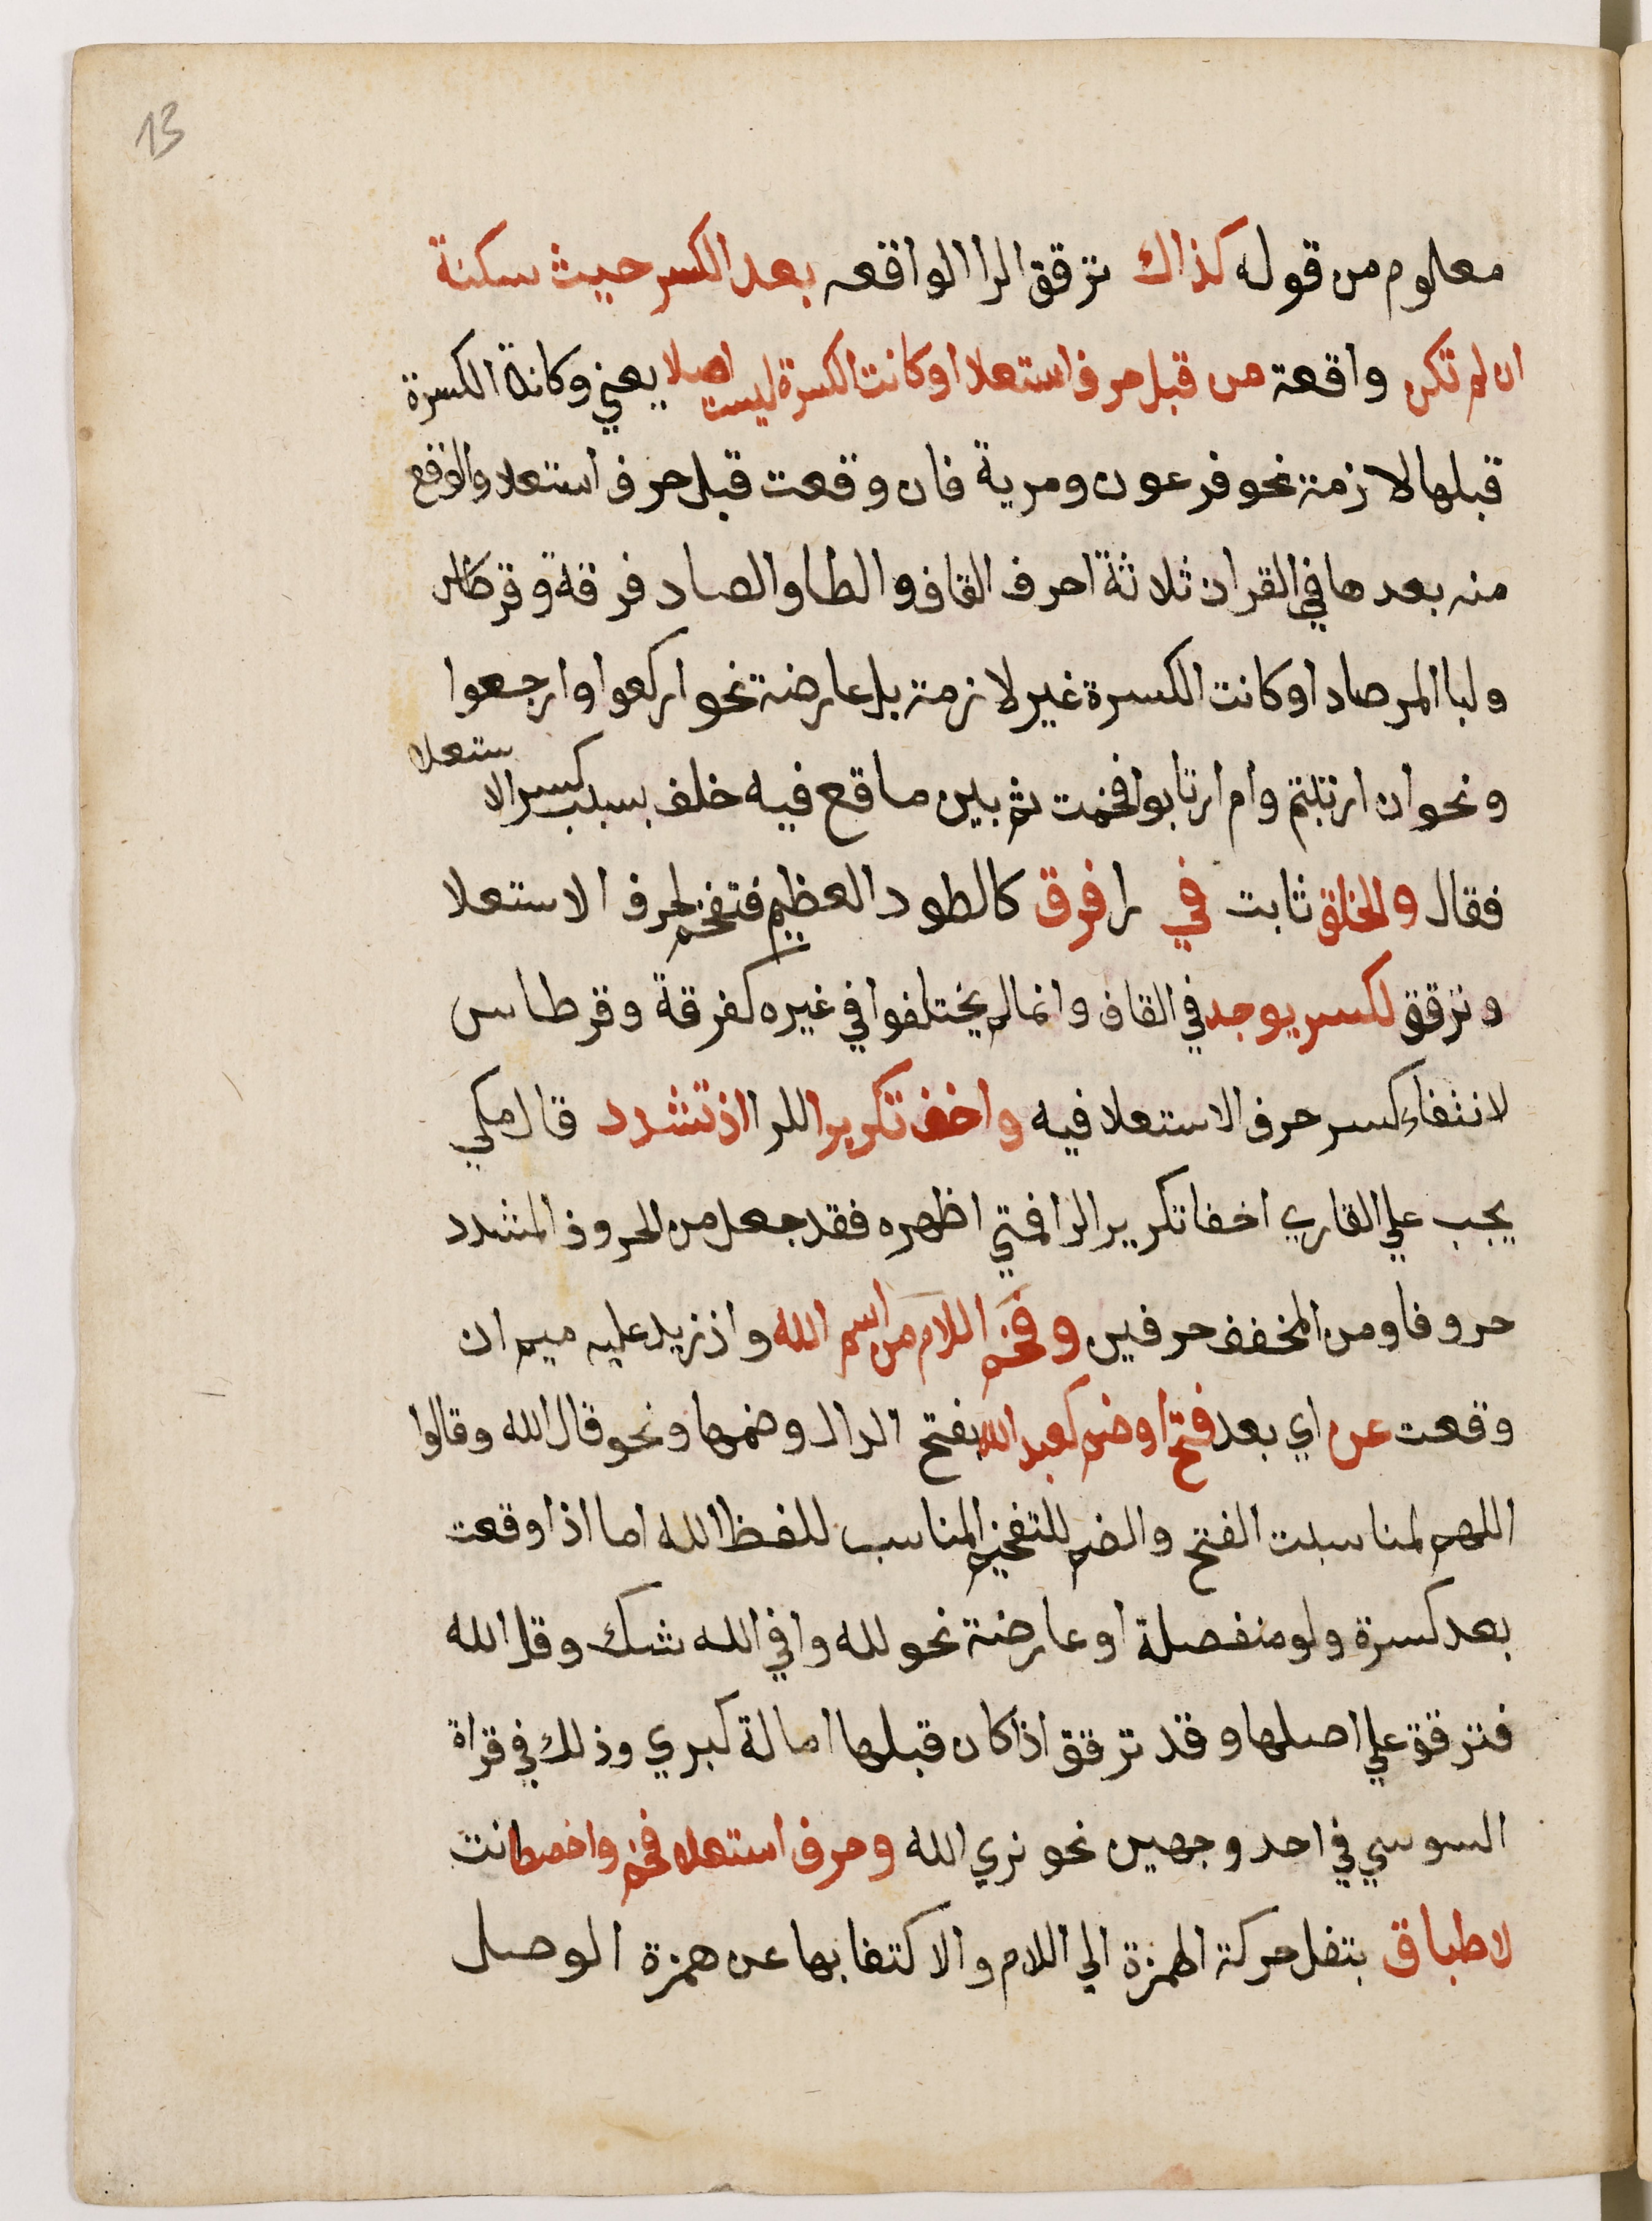 13
معلوم من قوله كذاك ترقق الرا الواقعه بعد الكسر حيث سكنة
ان لم تكن واقعة من قبل حرف استعلا او كانت الكسرة ليست اصلا يعني وكانة الكسرة
قبلها لازمة نحو فرعون ومرية فان وقعت قبل حرف استعلا والواقع
منه بعدها في القران ثلاثة احرف القاف والطا والصاد فرقة وقرطاس
ولبا المرصاد او كانت الكسرة غير لازمة بل عارضة نحو اركعوا وارجعوا
ونحو ان ارتبتم وام ارتابوا فخمت ثم بين ماقع فيه خلف بسبب كسر الا ستعلا
فقال والخلق ثابت في را فرق كالطود العظيم فتفخم لحرف الاستعلا
وترقق لكسر يوجد في القاف وانما لم يختلفوا في غيره كفرقة وقرطاس
لانتفاء كسر حرف الاستعلا فيه واخف تكريرا للرا اذ تشدد قال مكي
يجب علي القاري اخفا تكرير الرا فمتي اظهره فقد جعل من الحروف المشدد
حروفا ومن المخفف حرفين وفخم اللام من اسم الله واذ زيد عليه ميم ان
وقعت عن اي بعد فتح او ضم كعبد الله بفتح الدال وضمها ونحو قال الله وقالوا
اللهم لمناسبت الفتح والضم للتفخيم المناسب للفظ الله اما اذا وقعت
بعد كسرة ولو منفصلة او عارضة نحو لله وافي الله شك وقل الله
فترقق علي اصلها وقد ترقق اذا كان قبلها امالة كبري وذلك في قراة
السوسي في احد وجهين نحو نري الله وحرف استعلا فخم واخصطانت
لاطباق بتفل حركة الهمزة الي اللام والاكتفا بها عن همزة الوصل